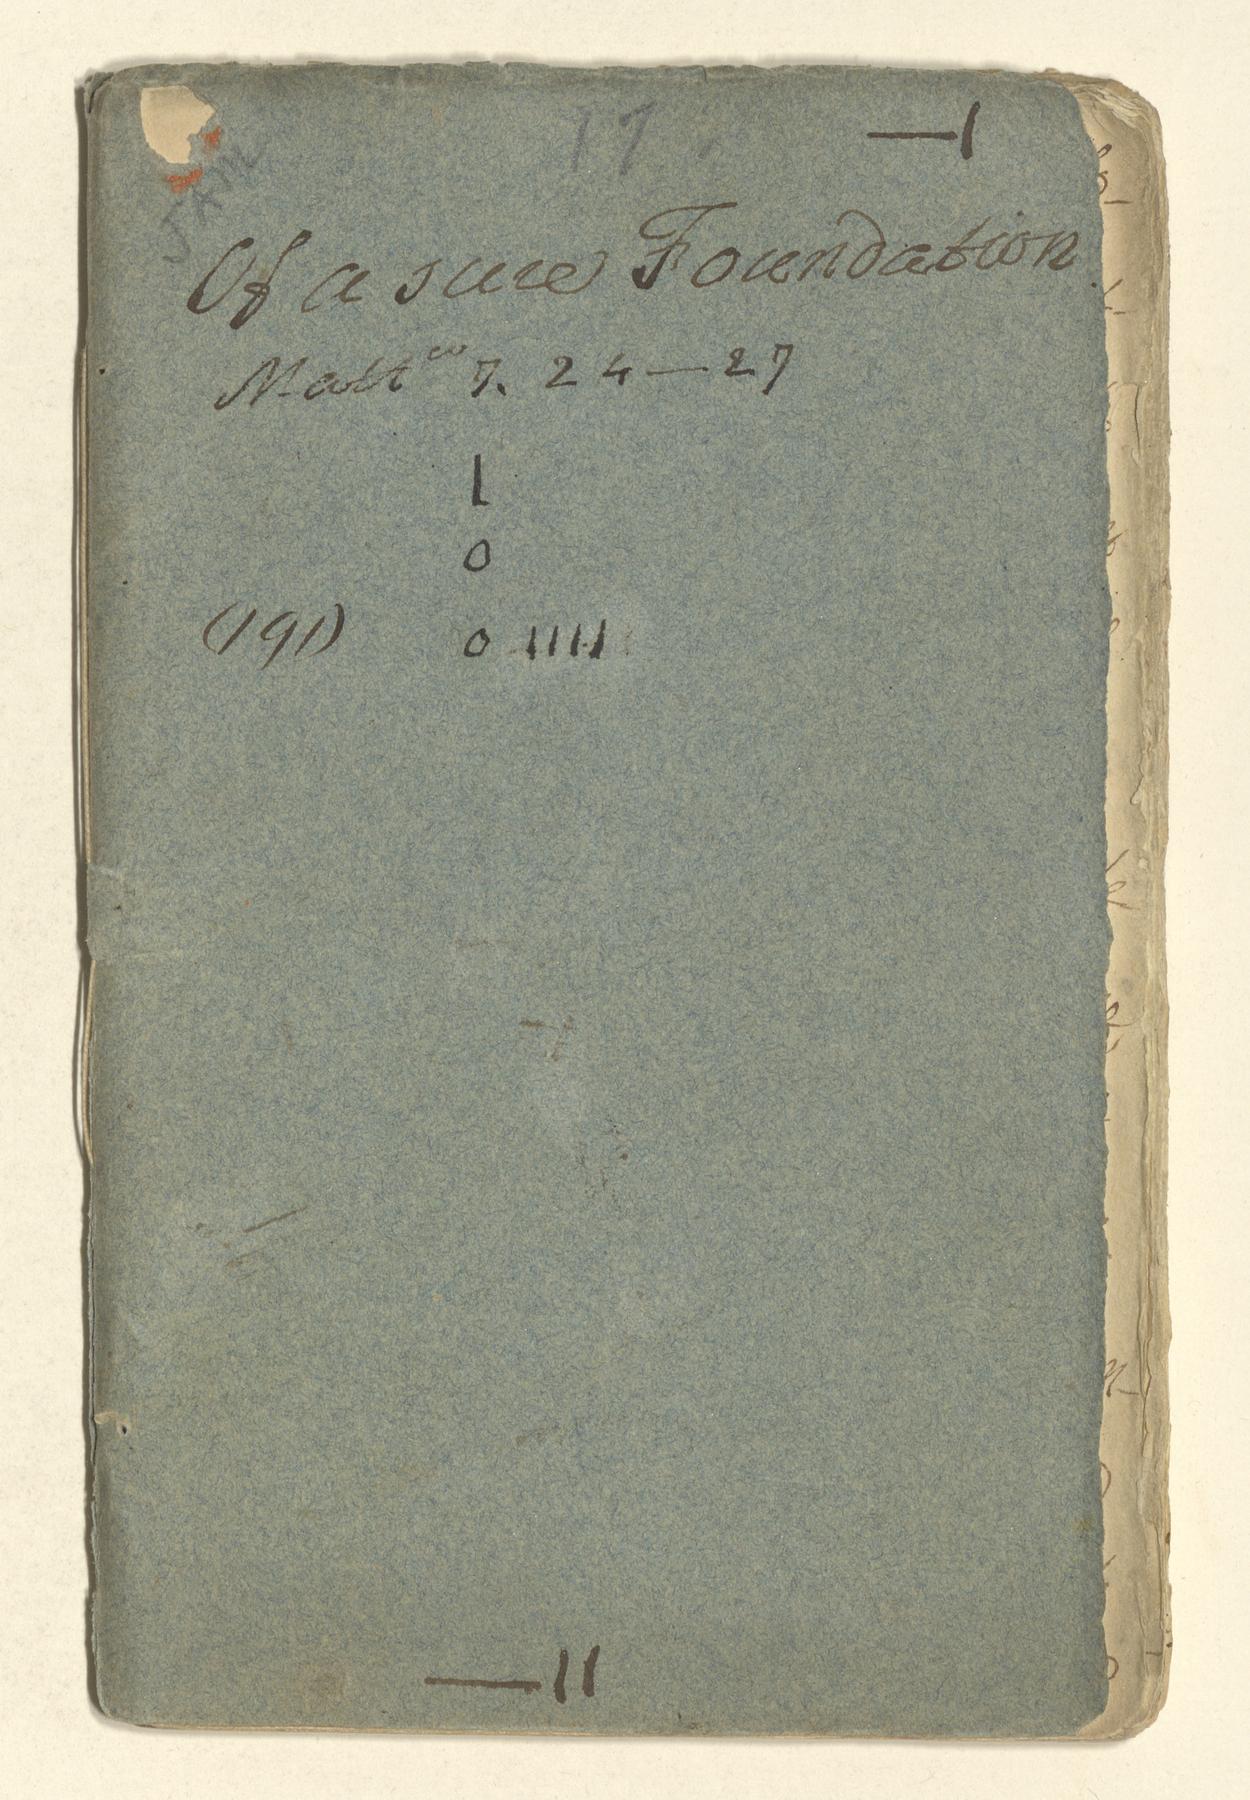 17
—1
JAN
Of a sure Foundation.
Matt^ew 7. 24—27
1
0
(191) 0 1111
—11